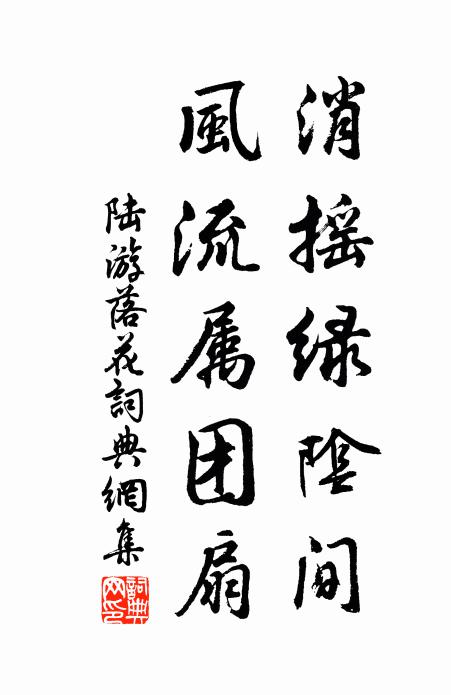 消摇绿陰间
風流属团扇
陆游落花詞典網集
詞典網印